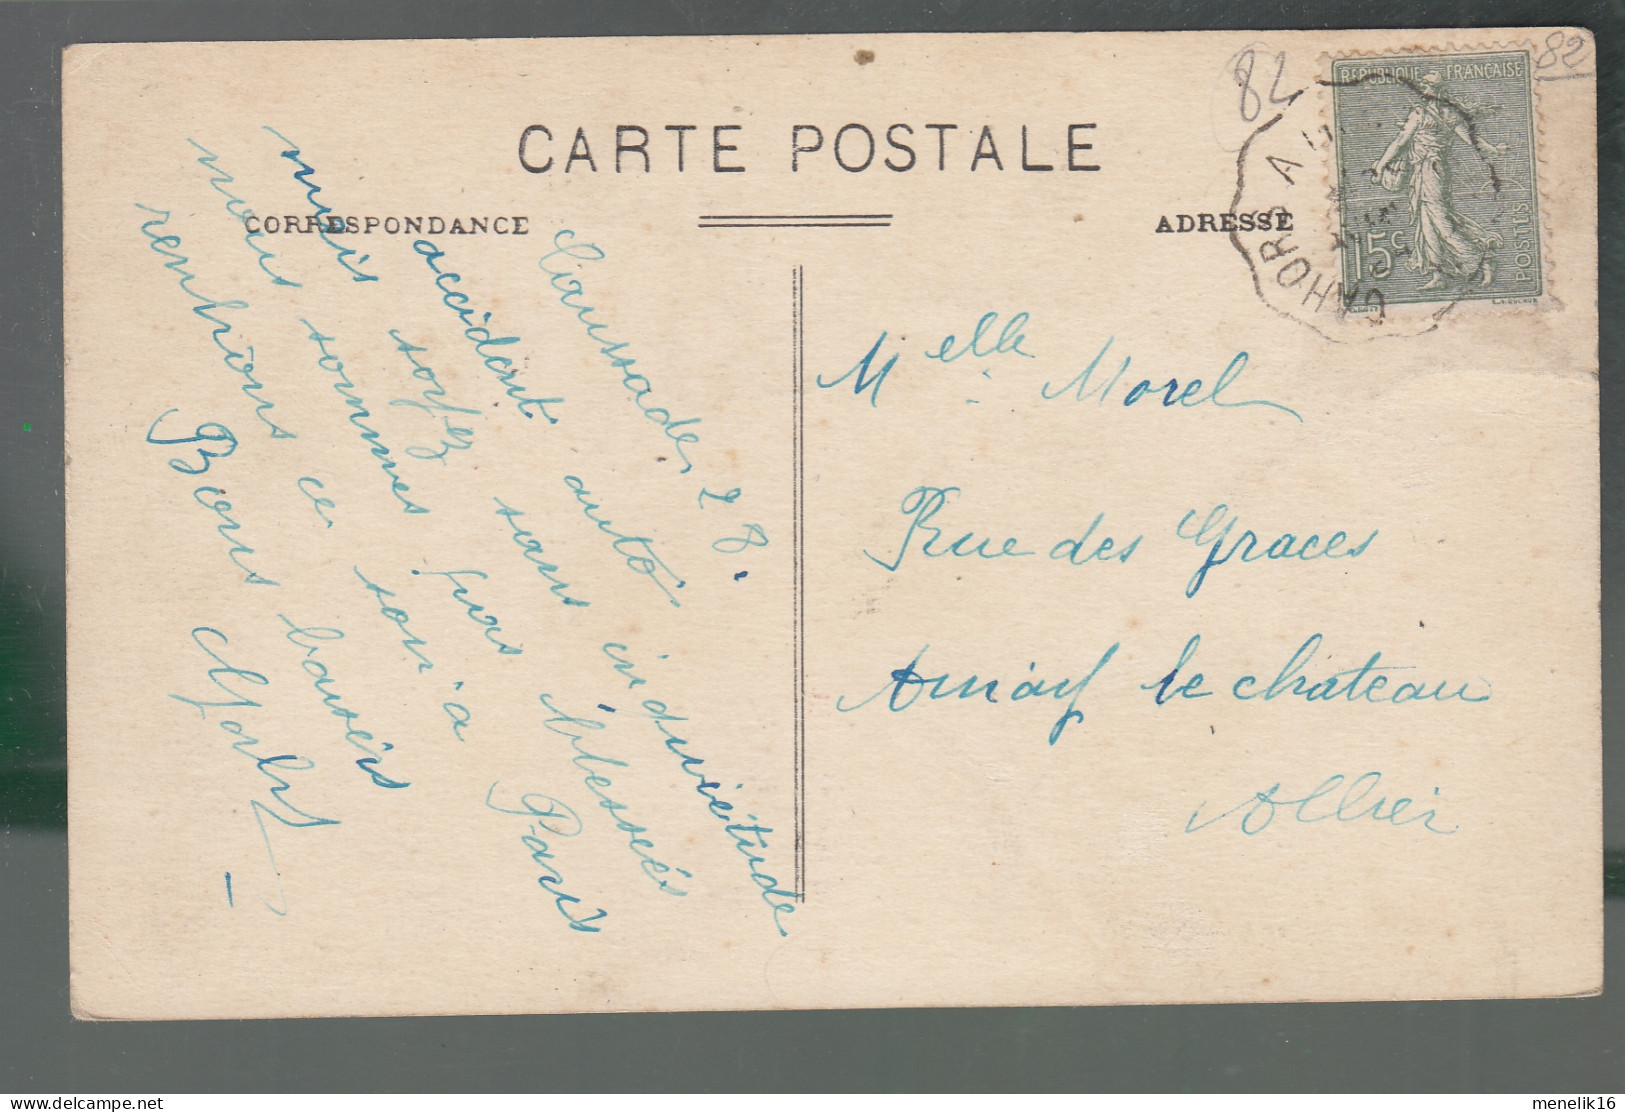 82
82
CARTE POSTALE
CORRESPONDANCE
ADRESSE
REPUBLIQUE FRANÇAISE
15c
POSTES
CAHORS A
Caussade, 28.
accident auto
mais soyez sans inquiétude
nous sommes pas blessés
rentrons ce soir à Paris
Bons baisers
Melle Morel
Rue des Graces
Ainay le chateau
Allier
menelik16